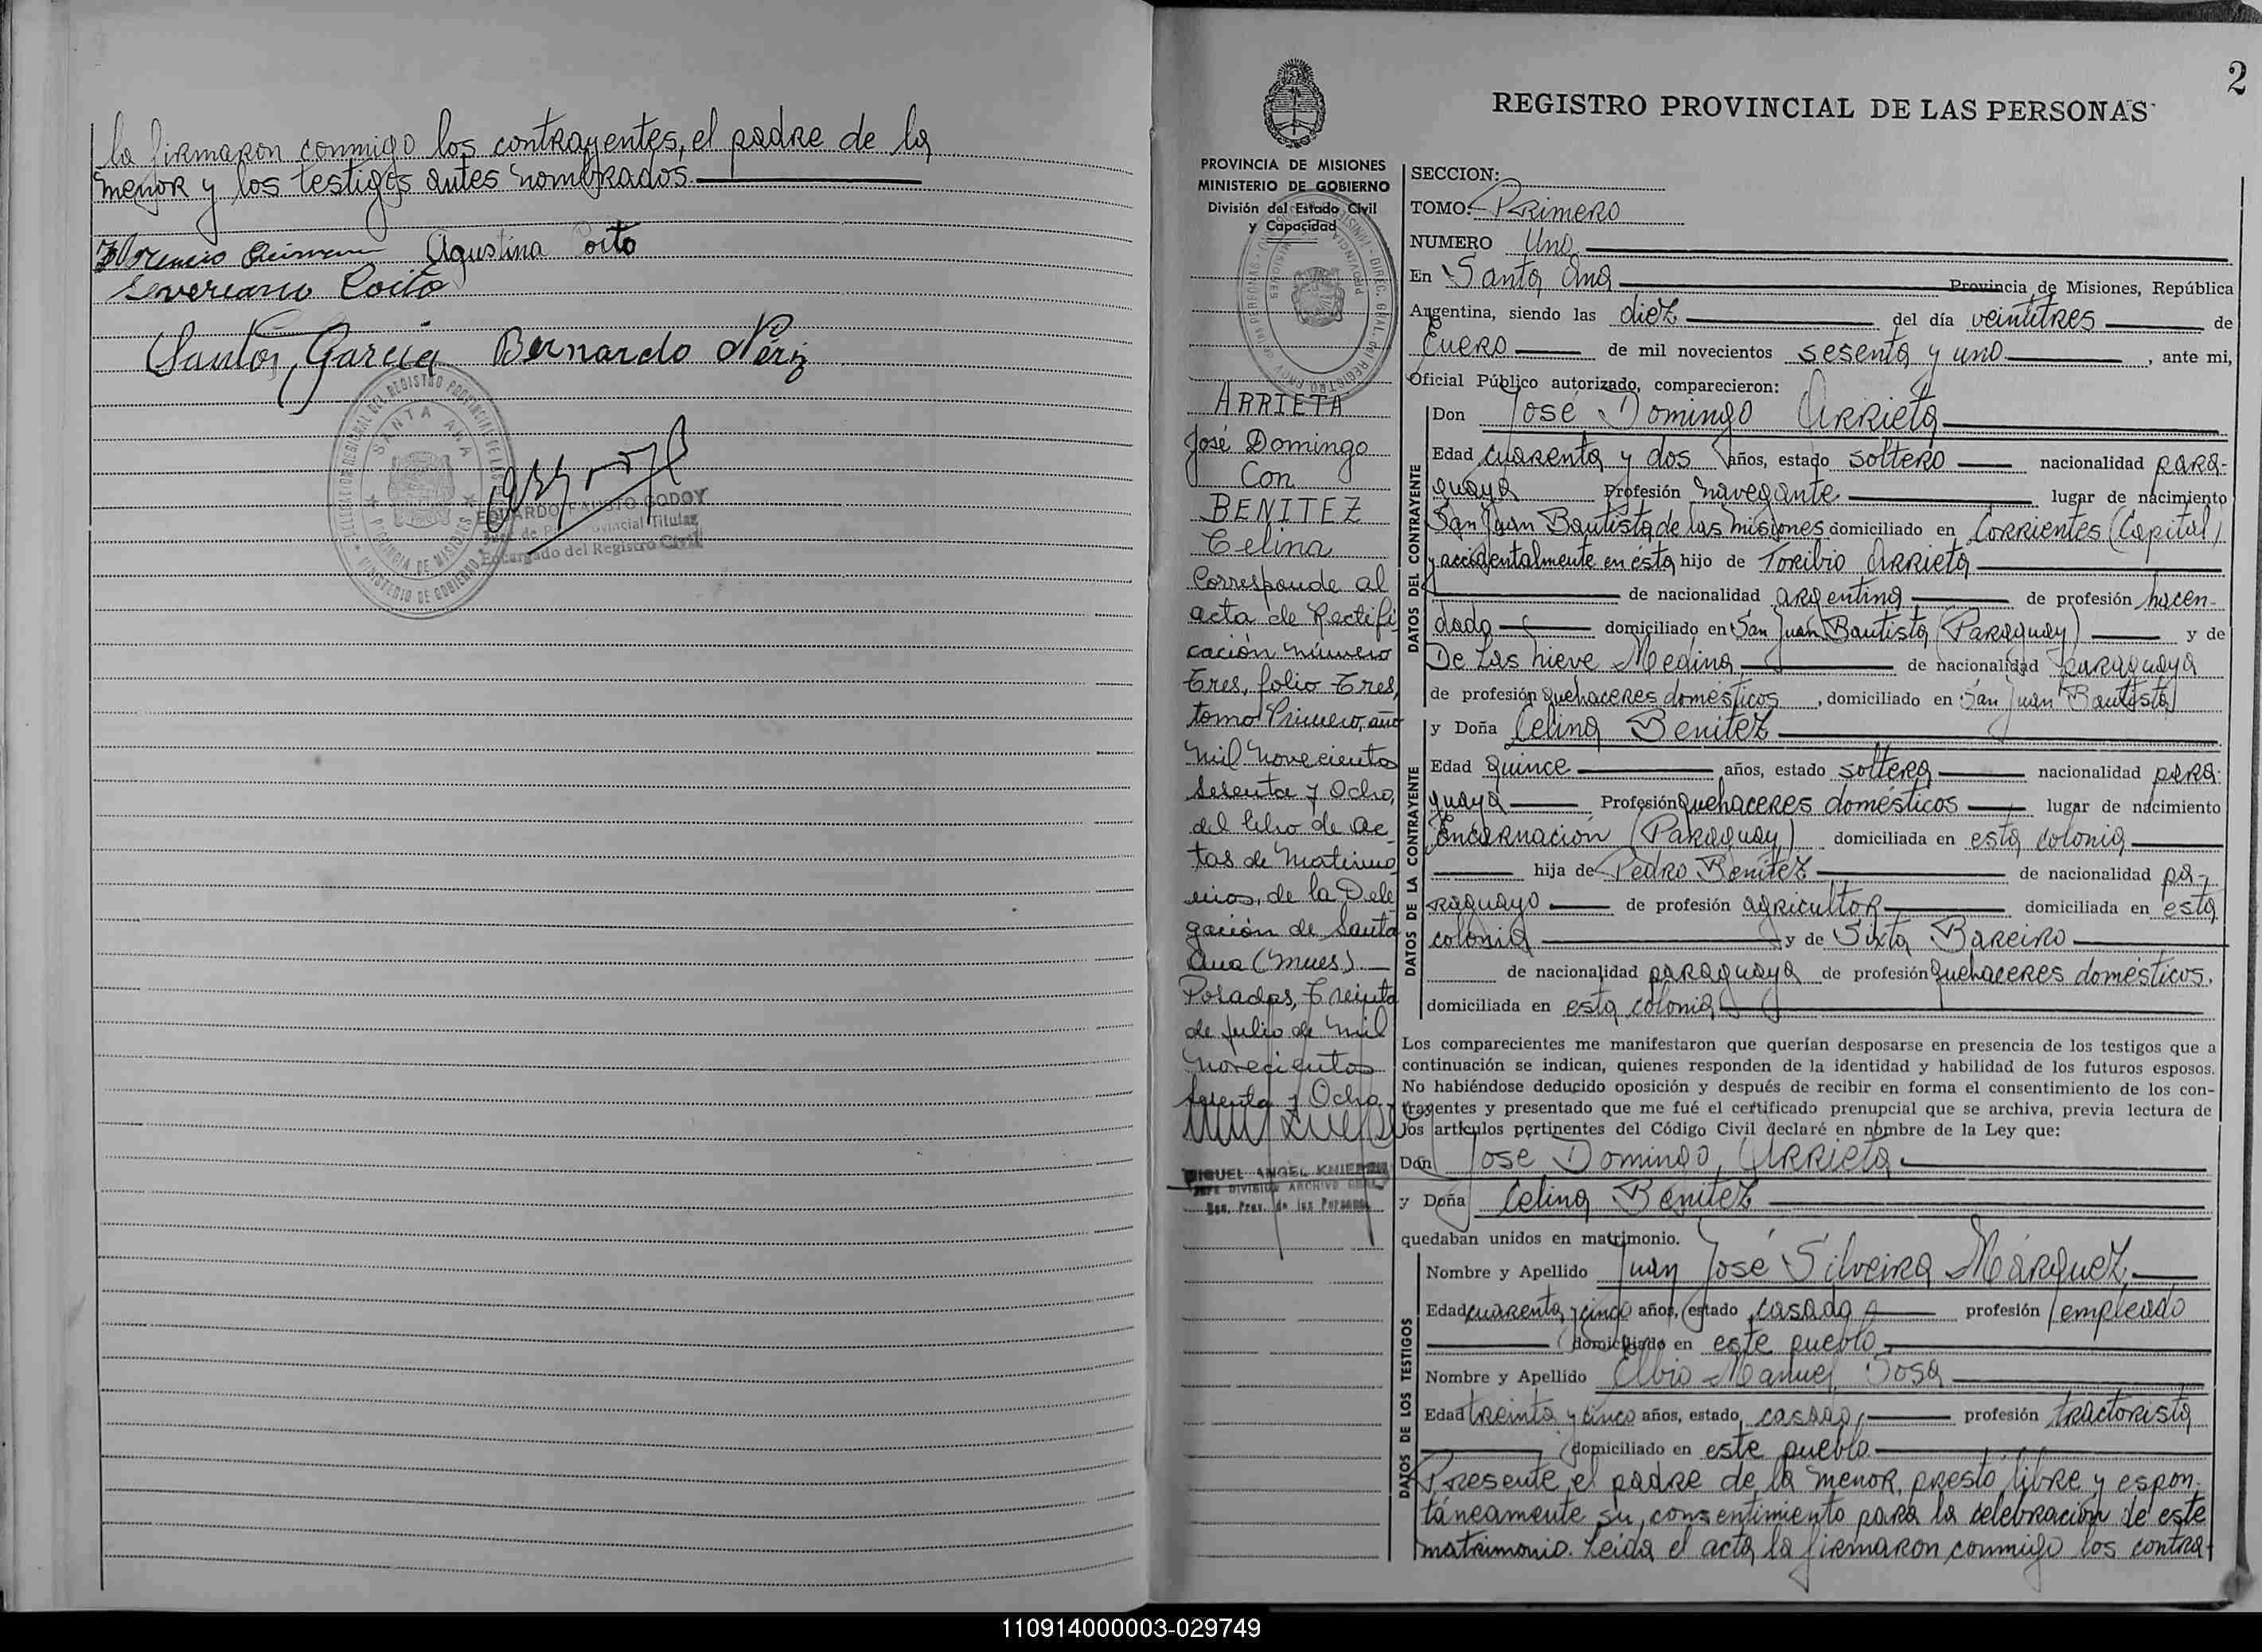 la firmaron conmigo los contrayentes, el padre de la
menor y los testigos antes nombrados.
Agustina Coito
Severiano Coito
Santos Garcia Bernardo Nériz
SANTA ANA
PROVINCIA DE MISIONES
MINISTERIO DE GOBIERNO
EDUARDO FAUSTO GODOY
Juez de Paz Provincial Titular
Encargado del Registro Civil
2
REGISTRO PROVINCIAL DE LAS PERSONAS
PROVINCIA DE MISIONES
MINISTERIO DE GOBIERNO
División del Estado Civil
y Capacidad
ARRIETA
José Domingo
Con
BENITEZ
Celina
Corresponde al
acta de Rectifi
cación número
Tres, folio Tres,
tomo Primero, año
mil novecientos
sesenta y Ocho,
del libro de ac
tas de matrimo
nios, de la Dele
gación de Santa
Ana (Mnes)
Posadas, Treinta
de julio de mil
novecientos
sesenta y Ocho
MIGUEL ANGEL
JEFE DIVISION ARCHIVO GRAL.
Reg. Prov. de las Personas
SECCION:
TOMO: Primero
NUMERO Uno
En Santa Ana Provincia de Misiones, República
Argentina, siendo las diez del día veintitres de
Enero de mil novecientos sesenta y uno, ante mi,
Oficial Público autorizado, comparecieron:
DATOS DEL CONTRAYENTE
Don José Domingo Arrieta
Edad cuarenta y dos años, estado soltero nacionalidad para-
guaya Profesión navegante lugar de nacimiento
San Juan Bautista de las Misiones domiciliado en Corrientes (Capital)
y accidentalmente en ésta hijo de Toribio Arrieta
de nacionalidad argentina de profesión hacen-
dado domiciliado en San Juan Bautista (Paraguay) y de
De Las Nieve Medina de nacionalidad paraguaya
de profesión quehaceres domésticos, domiciliado en San Juan Bautista
DATOS DE LA CONTRAYENTE
y Doña Celina Benitez
Edad quince años, estado soltera nacionalidad para-
guaya Profesión quehaceres domésticos lugar de nacimiento
Encarnación (Paraguay) domiciliada en esta colonia
hija de Pedro Benitez de nacionalidad pa-
raguayo de profesión agricultor domiciliada en esta
colonia y de Sixta Bareiro
de nacionalidad paraguaya de profesión quehaceres domésticos.
domiciliada en esta colonia
Los comparecientes me manifestaron que querían desposarse en presencia de los testigos que a
continuación se indican, quienes responden de la identidad y habilidad de los futuros esposos.
No habiéndose deducido oposición y después de recibir en forma el consentimiento de los con-
trayentes y presentado que me fué el certificado prenupcial que se archiva, previa lectura de
los artículos pertinentes del Código Civil declaré en nombre de la Ley que:
Don José Domingo Arrieta
y Doña Celina Benitez
quedaban unidos en matrimonio.
DATOS DE LOS TESTIGOS
Nombre y Apellido Juan José Silveira Márquez,
Edad cuarenta y cinco años, estado casado profesión empleado
domiciliado en este pueblo
Nombre y Apellido Elbio Manuel Sosa
Edad treinta y cinco años, estado casado, profesión tractorista
domiciliado en este pueblo
Presente el padre de la menor, prestó libre y espon-
táneamente su consentimiento para la celebración de este
matrimonio. Leída el acta, la firmaron conmigo los contra-
110914000003-029749